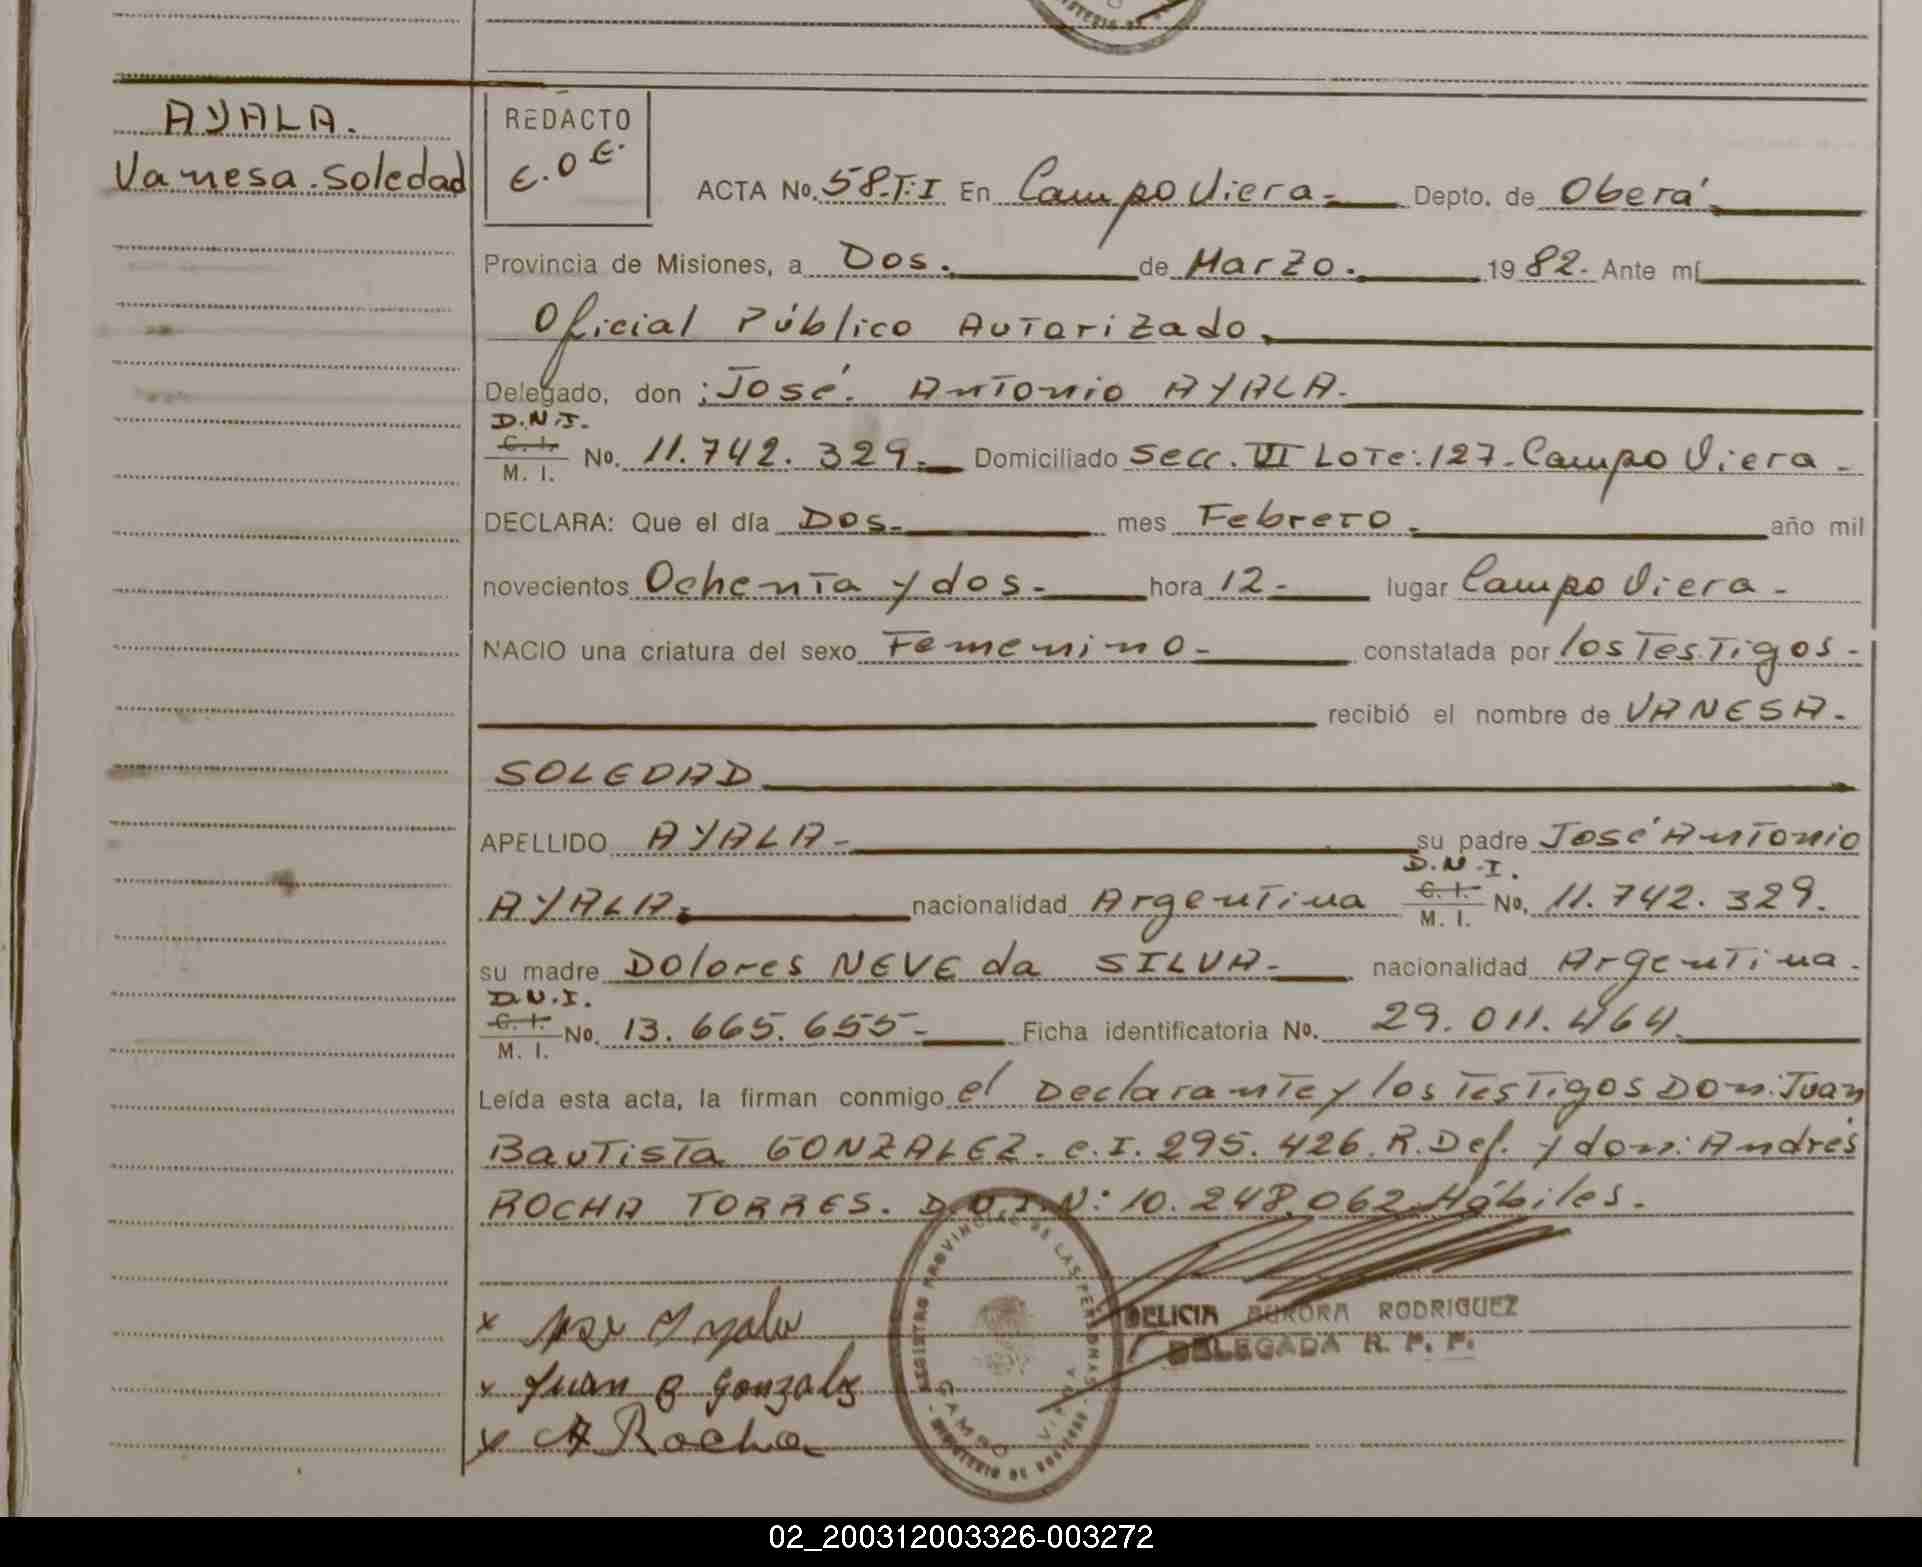 AYALA.
Vanesa.Soledad
REDACTO
E.O.E.
ACTA No. 58-T-I En Campo Viera- Depto. de Oberá.
Provincia de Misiones, a Dos. de Marzo. 1982. Ante mí
Oficial Público Autorizado.
Delegado, don : José. Antonio AYALA.
D.N.I.
C. I.
M. I.
No. 11.742.329.- Domiciliado Secc. VI Lote:127-Campo Viera-
DECLARA: Que el día Dos.- mes Febrero. año mil
novecientos Ochenta y dos.- hora 12.- lugar Campo Viera-
NACIO una criatura del sexo Femenino- constatada por los Testigos-
recibió el nombre de VANESA.
SOLEDAD
APELLIDO AYALA- su padre José Antonio
AYALA. nacionalidad Argentina
D.N.I.
C. I.
M. I.
No. 11.742.329.
su madre Dolores NEVE da SILVA- nacionalidad Argentina.
D.N.I.
C. I.
M. I.
No. 13.665.655- Ficha identificatoria No. 29.011.464
Leída esta acta, la firman conmigo el Declarante y los Testigos Don: Juan
Bautista GONZALEZ. c.I. 295.426.R.Def. y don: Andrés
ROCHA TORRES. D.N.I.Nº: 10.248.062 Hábiles.
x Jose Ayala
x Juan B Gonzalez
x A Rocha
REGISTRO PROVINCIAL DE LAS PERSONAS
CAMPO VIERA
MINISTERIO DE GOBIERNO
DELICIA AURORA RODRIGUEZ
DELEGADA R. P. P.
02_200312003326-003272